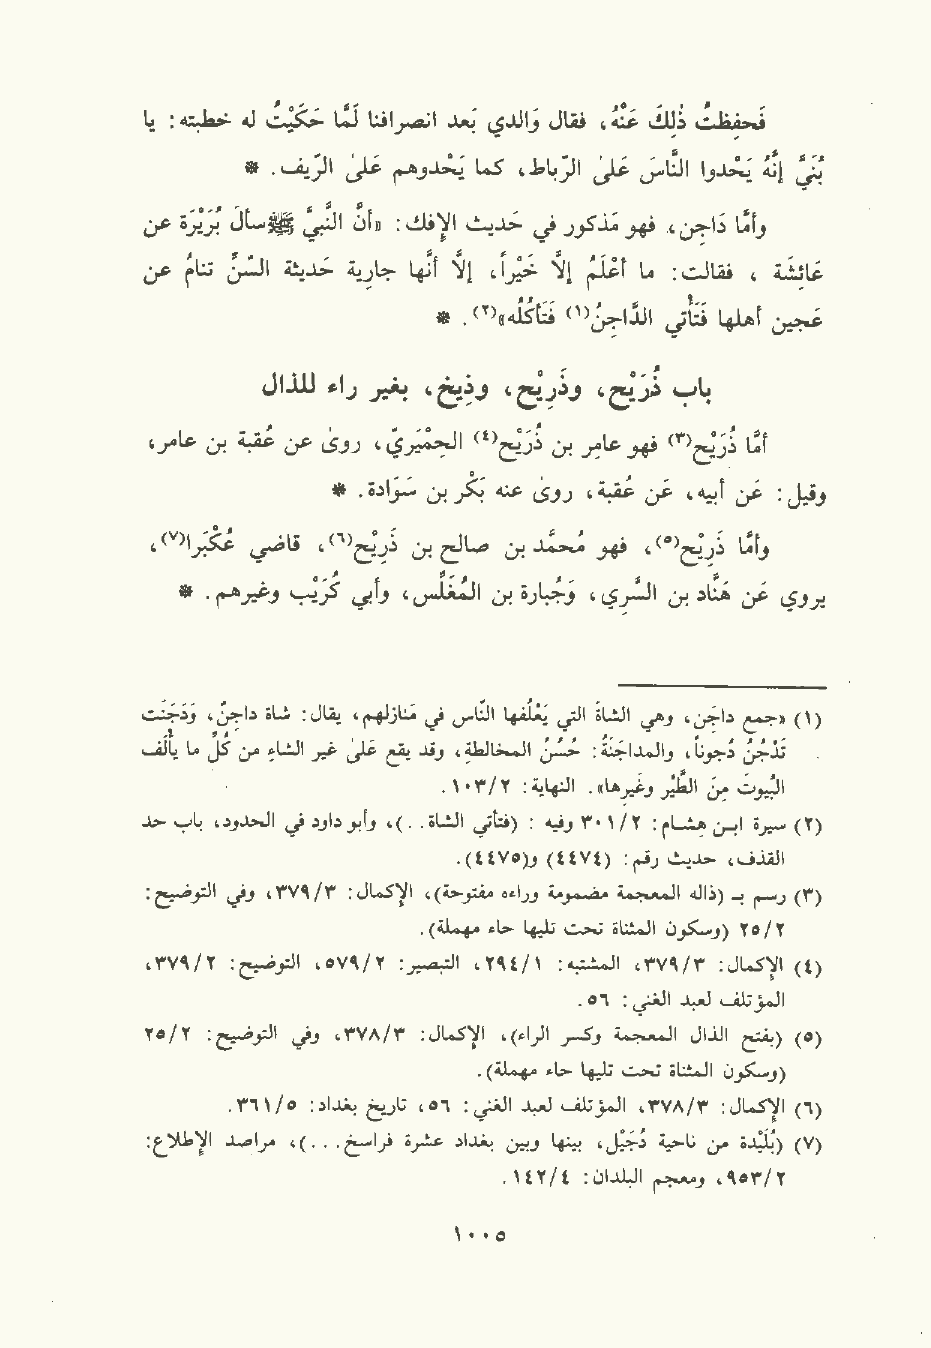 فَحفِظتُ ذٰلِكَ عَنْهُ، فقال وَالدي بَعد انصرافنا لَمَّا حَكَيْتُ له خطبته: يا
بُنَيَّ إنهُ يَحْدوا النَّاسَ عَلىٰ الرِّباط، كما يَحْدوهم عَلىٰ الرِّيف. *
وأمَّا دَاجِن، فهو مَذكور في حَديث الإفك: «أنَّ النَّبيَّ ﷺ سألَ بُرَيْرَة عن
عَائِشَة ، فقالت: ما أعْلَمُ إلَّا خَيْراً، إلَّا أنَّها جارِية حَديثة السِّنِّ تنامُ عن
عَجين أهلها فَتَأتي الدَّاجِنُ(١) فَتَأكُلُه»(٢). *
باب ذُرَيْح، وذَرِيْح، وذِيخ، بغير راء للذال
أمَّا ذُرَيْح(٣) فهو عامر بن ذُرَيْح(٤) الحِمْيَريّ، روىٰ عن عُقبة بن عامر،
وقيل: عَن أبيه، عَن عُقبة، روىٰ عنه بَكْر بن سَوَادة. *
وأمَّا ذَرِيْح(٥)، فهو مُحمَّد بن صالح بن ذَرِيْح(٦)، قاضي عُكْبَرا(٧)،
يروي عَن هَنَّاد بن السَّرِي، وَجُبارة بن المُغَلِّس، وأبي كُرَيْب وغيرهم. *
(١) «جمع داجَن، وهي الشاة التي يَعْلفُها النَّاس في مَنازلهم، يقال: شاة داجِنٌ، وَدَجَنَت
تَدْجُنُ دُجوناً، والمداجَنَةُ: حُسْنُ المخالطة، وقد يقع علىٰ غير الشاء من كُلِّ ما يألَف
البُيوتَ مِنَ الطَّيْر وغَيرِها». النهاية: ١٠٣/٢.
(٢) سيرة ابن هشام: ٣٠١/٢ وفيه : (فتأتي الشاة..)، وأبو داود في الحدود، باب حد
القذف، حديث رقم: (٤٤٧٤) و(٤٤٧٥).
(٣) رسم بـ (ذاله المعجمة مضمومة وراءه مفتوحة)، الإكمال: ٣٧٩/٣، وفي التوضيح:
٢٥/٢ (وسكون المثناة تحت تليها حاء مهملة).
(٤) الإكمال: ٣٧٩/٣، المشتبه: ٢٩٤/١، التبصير: ٥٧٩/٢، التوضيح: ٣٧٩/٢،
المؤتلف لعبد الغني: ٥٦.
(٥) (بفتح الذال المعجمة وكسر الراء)، الإكمال: ٣٧٨/٣، وفي التوضيح: ٢٥/٢
(وسكون المثناة تحت تليها حاء مهملة).
(٦) الإكمال: ٣٧٨/٣، المؤتلف لعبد الغني: ٥٦، تاريخ بغداد: ٣٦١/٥.
(٧) (بُلَيْدة من ناحية دُجَيْل، بينها وبين بغداد عشرة فراسخ...)، مراصد الإطلاع:
٩٥٣/٢، ومعجم البلدان: ١٤٢/٤.
١٠٠٥